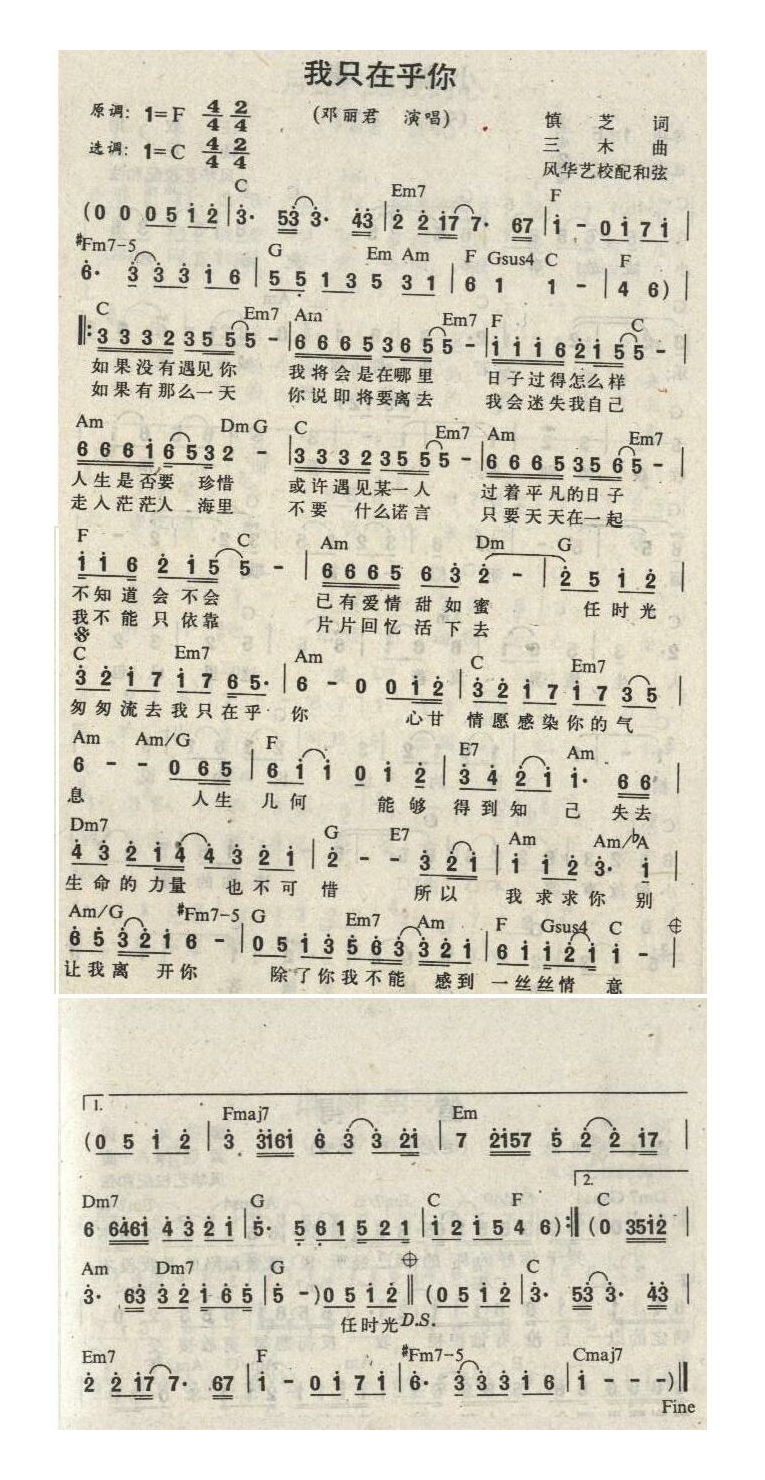 我只在乎你
原调: 1=F 4/4 2/4 (邓丽君 演唱) 慎芝词
选调: 1=C 4/4 2/4 三木曲
风华艺校配和弦
C Em7 F
(0 0 0 5 i 2 | 3· 53 3· 43 | 2 2 i7 7· 67 | i - 0 i 7 i |
#Fm7-5 G Em Am F Gsus4 C F
6· 3 3 3 i 6 | 5 5 1 3 5 3 1 | 6 1 1 - | 4 6) |
C Em7 Am Em7 F C
‖: 3 3 3 2 3 5 5 5 - | 6 6 6 5 3 6 5 5 - | i i i 6 2 i 5 5 - |
如果没有遇见你 我将会是在哪里 日子过得怎么样
如果有那么一天 你说即将要离去 我会迷失我自己
Am Dm G C Em7 Am Em7
6 6 6 i 6 5 3 2 - | 3 3 3 2 3 5 5 5 - | 6 6 6 5 3 5 6 5 - |
人生是否要 珍惜 或许遇见某一人 过着平凡的日子
走入茫茫人 海里 不要 什么诺言 只要天天在一起
F C Am Dm G
i i 6 2 i 5 5 - | 6 6 6 5 6 3 2 - | 2 5 i 2 |
不知道会不会 已有爱情甜如蜜 任时光
我不能只依靠 片片回忆活下去
C Em7 Am C Em7
3 2 i 7 i 7 6 5· | 6 - 0 0 i 2 | 3 2 i 7 i 7 3 5 |
匆匆流去我只在乎 你 心甘 情愿感染你的气
Am Am/G F E7 Am
6 - - 0 6 5 | 6 i i 0 i 2 | 3 4 2 i i· 6 6 |
息 人生 几何 能够 得到知 己 失去
Dm7 G E7 Am Am/bA
4 3 2 i 4 4 3 2 i | 2 - - 3 2 i | i i 2 3· i |
生命的力量 也不可 惜 所以 我求求你 别
Am/G #Fm7-5 G Em7 Am F Gsus4 C
6 5 3 2 i 6 - | 0 5 i 3 5 6 3 3 2 i | 6 i i 2 i i - |
让我离 开你 除了你我不能 感到 一丝丝情 意
1. Fmaj7 Em
(0 5 i 2 | 3 3i6i 6 3 3 2i | 7 2i57 5 2 2 i7 |
2.
Dm7 G C F C
6 646i 4 3 2 i | 5· 5 6 1 5 2 1 | i 2 i 5 4 6) :‖ (0 35i2 |
Am Dm7 G C
3· 63 3 2 i 6 5 | 5 -) 0 5 i 2 ‖ (0 5 i 2 | 3· 53 3· 43 |
任时光 D.S.
Em7 F #Fm7-5 Cmaj7
2 2 i7 7· 67 | i - 0 i 7 i | 6· 3 3 3 i 6 | i - - -) ‖
Fine